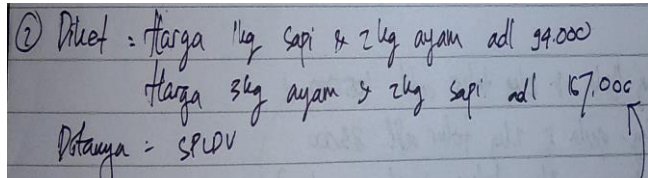 ② Diket = Harga 1kg sapi & 2kg ayam adl 94.000
Harga 3kg ayam & 2kg sapi adl 167.000
Ditanya = SPLDV